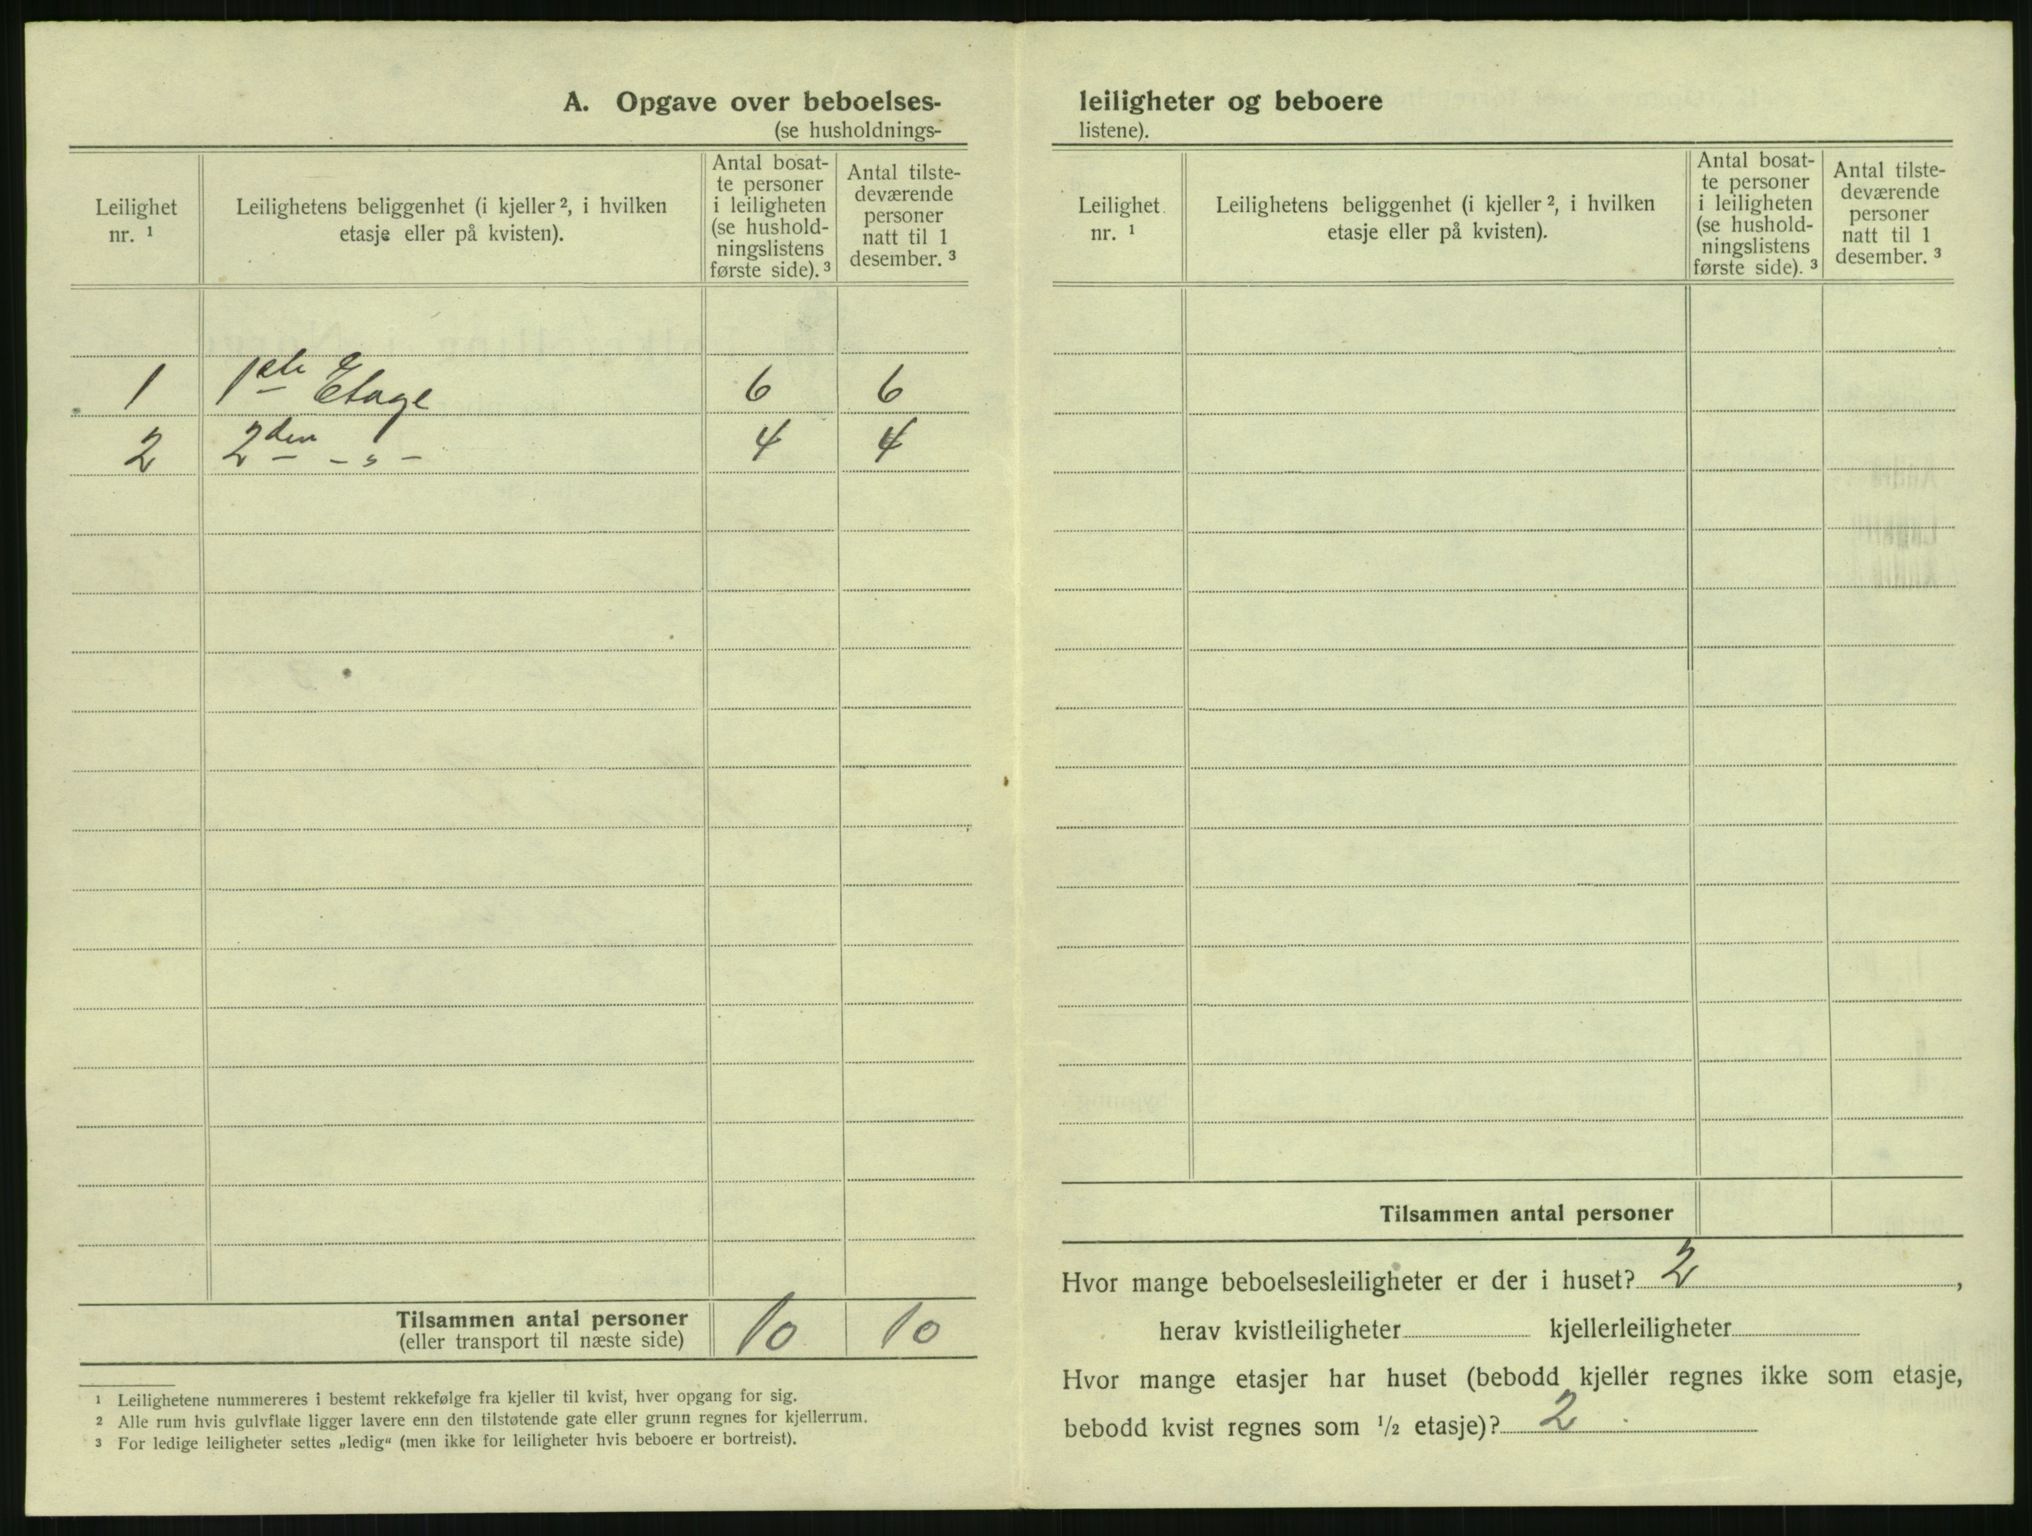 A. Opgave over beboelses-
(se husholdnings-
Leilighet nr. ¹
Leilighetens beliggenhet (i kjeller ², i hvilken etasje eller på kvisten).
Antal bosat-
te personer
i leiligheten
(se hushold-
ningslistens
første side). ³
Antal tilste-
deværende
personer
natt til 1
desember. ³
1 1ste Etage 6 6
2 2den - „ - 4 4
Tilsammen antal personer 10 10
(eller transport til næste side)
¹ Leilighetene nummereres i bestemt rekkefølge fra kjeller til kvist, hver opgang for sig.
² Alle rum hvis gulvflate ligger lavere enn den tilstøtende gate eller grunn regnes for kjellerrum.
³ For ledige leiligheter settes „ledig“ (men ikke for leiligheter hvis beboere er bortreist).
leiligheter og beboere
listene).
Leilighet nr. ¹
Leilighetens beliggenhet (i kjeller ², i hvilken etasje eller på kvisten).
Antal bosat-
te personer
i leiligheten
(se hushold-
ningslistens
første side). ³
Antal tilste-
deværende
personer
natt til 1
desember. ³
Tilsammen antal personer
Hvor mange beboelsesleiligheter er der i huset? 2,
herav kvistleiligheter kjellerleiligheter
Hvor mange etasjer har huset (bebodd kjeller regnes ikke som etasje,
bebodd kvist regnes som ½ etasje)? 2